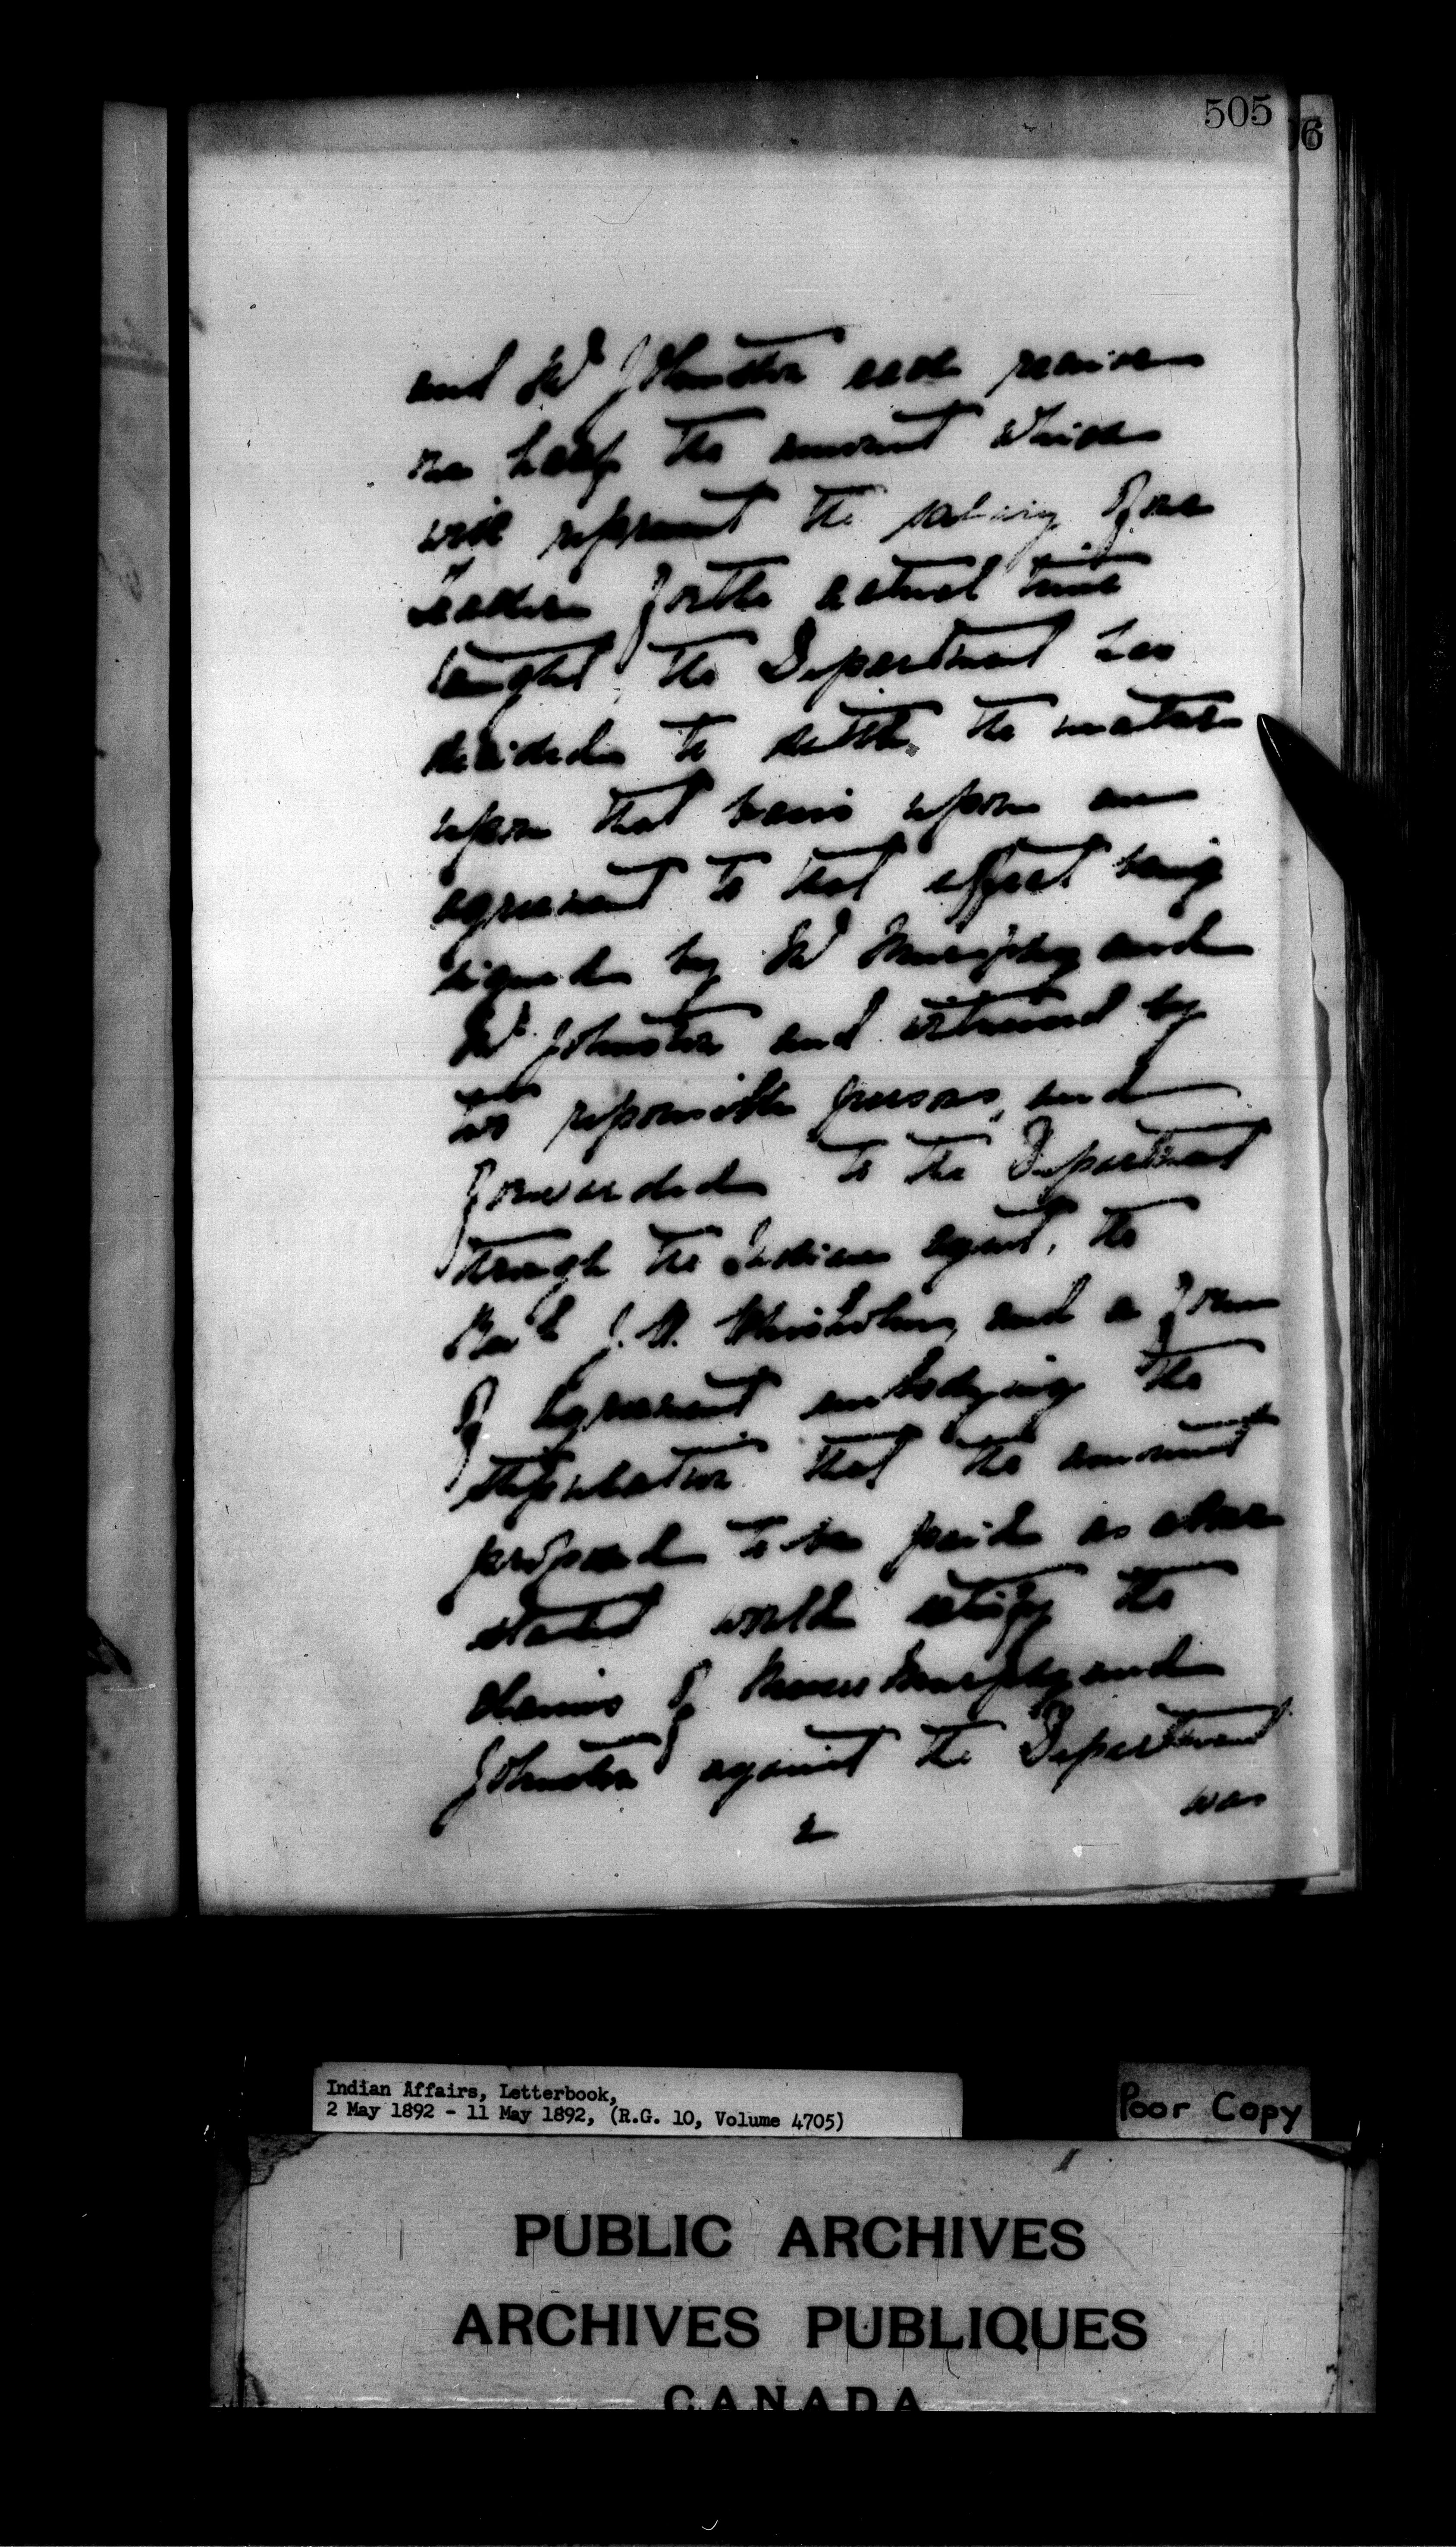 505
06
and Mr Johnston each receive
one half the amount which
will represent the salary of one
Teacher for the actual time
taught, the Department has
decided to settle the matter
upon that basis upon an
agreement to that effect being
signed by Mr Murphy and
Mr Johnston and witnessed by
two responsible persons, and
forwarded to the Department
through the Indian agent, the
Revd J. A. Chisholm, and a form
of Agreement embodying the
stipulation that the amount
proposed to be paid as above
stated would satisfy the
claims of Messrs Murphy and
Johnston against the Department
2
was
Indian Affairs, Letterbook,
2 May 1892 - 11 May 1892, (R.G. 10, Volume 4705)
Poor Copy
PUBLIC ARCHIVES
ARCHIVES PUBLIQUES
CANADA